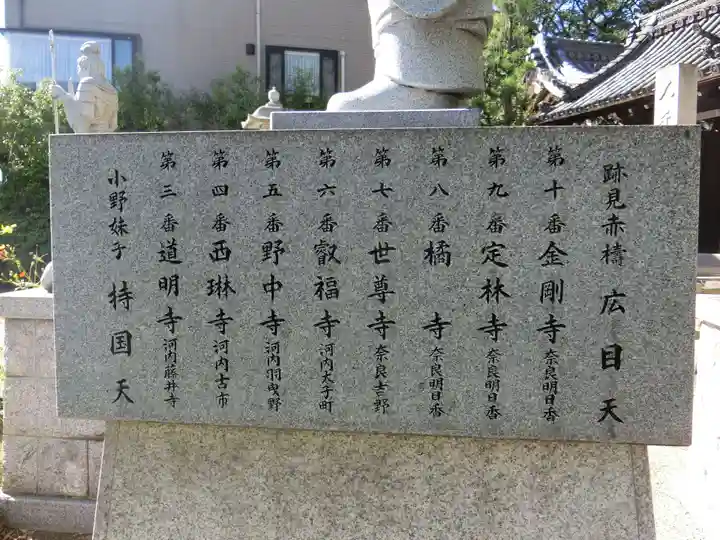 跡見赤檮 広目天
第十番 金剛寺 奈良明日香
第九番 定林寺 奈良明日香
第八番 橘寺 奈良明日香
第七番 世尊寺 奈良吉野
第六番 叡福寺 河内太子町
第五番 野中寺 河内羽曳野
第四番 西琳寺 河内古市
第三番 道明寺 河内藤井寺
小野妹子 持国天